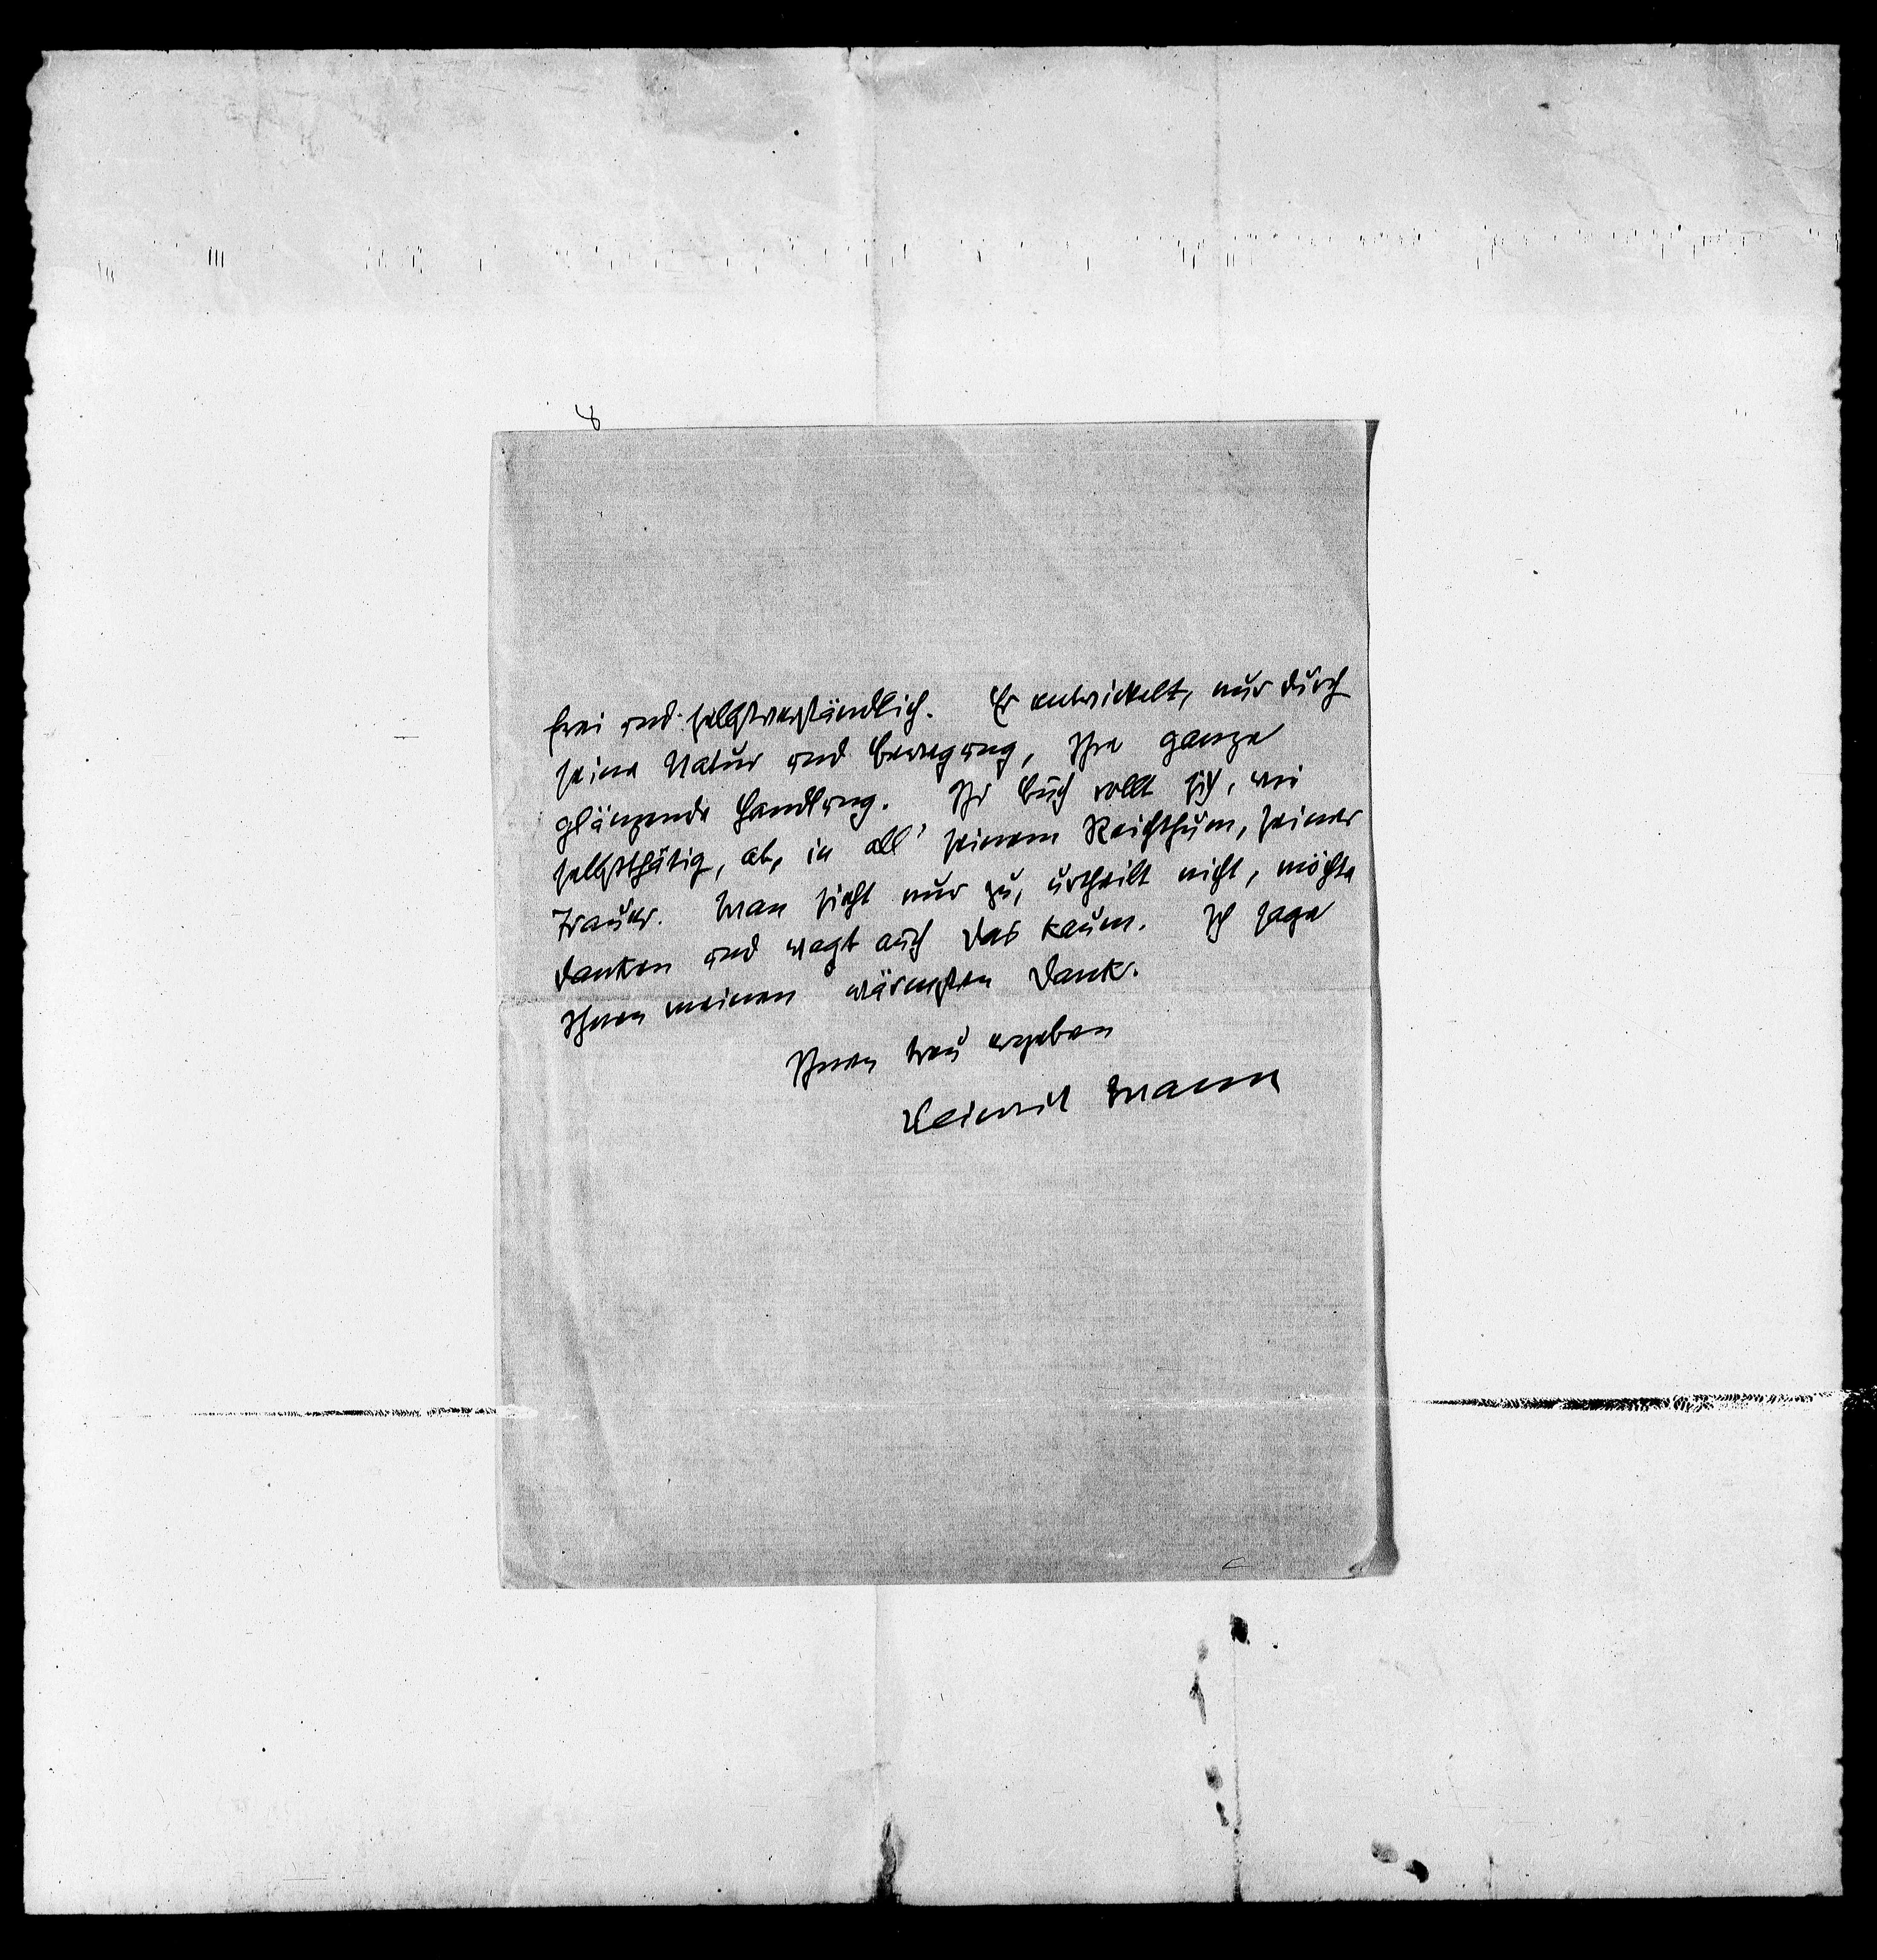 8
frei und selbstverständlich. Er entwickelt, nur durch
seine Natur und Bewegung, Ihre ganze
glänzende Handlung. Ihr Buch rollt sich, wie
selbstthätig, ab, in all' seinem Reichthum, seiner
Trauer. Man sieht nur zu, urtheilt nicht, möchte
danken und wagt auch das kaum. Ich sage
Ihnen meinen wärmsten Dank.
Ihnen treu ergeben
Heinrich Mann